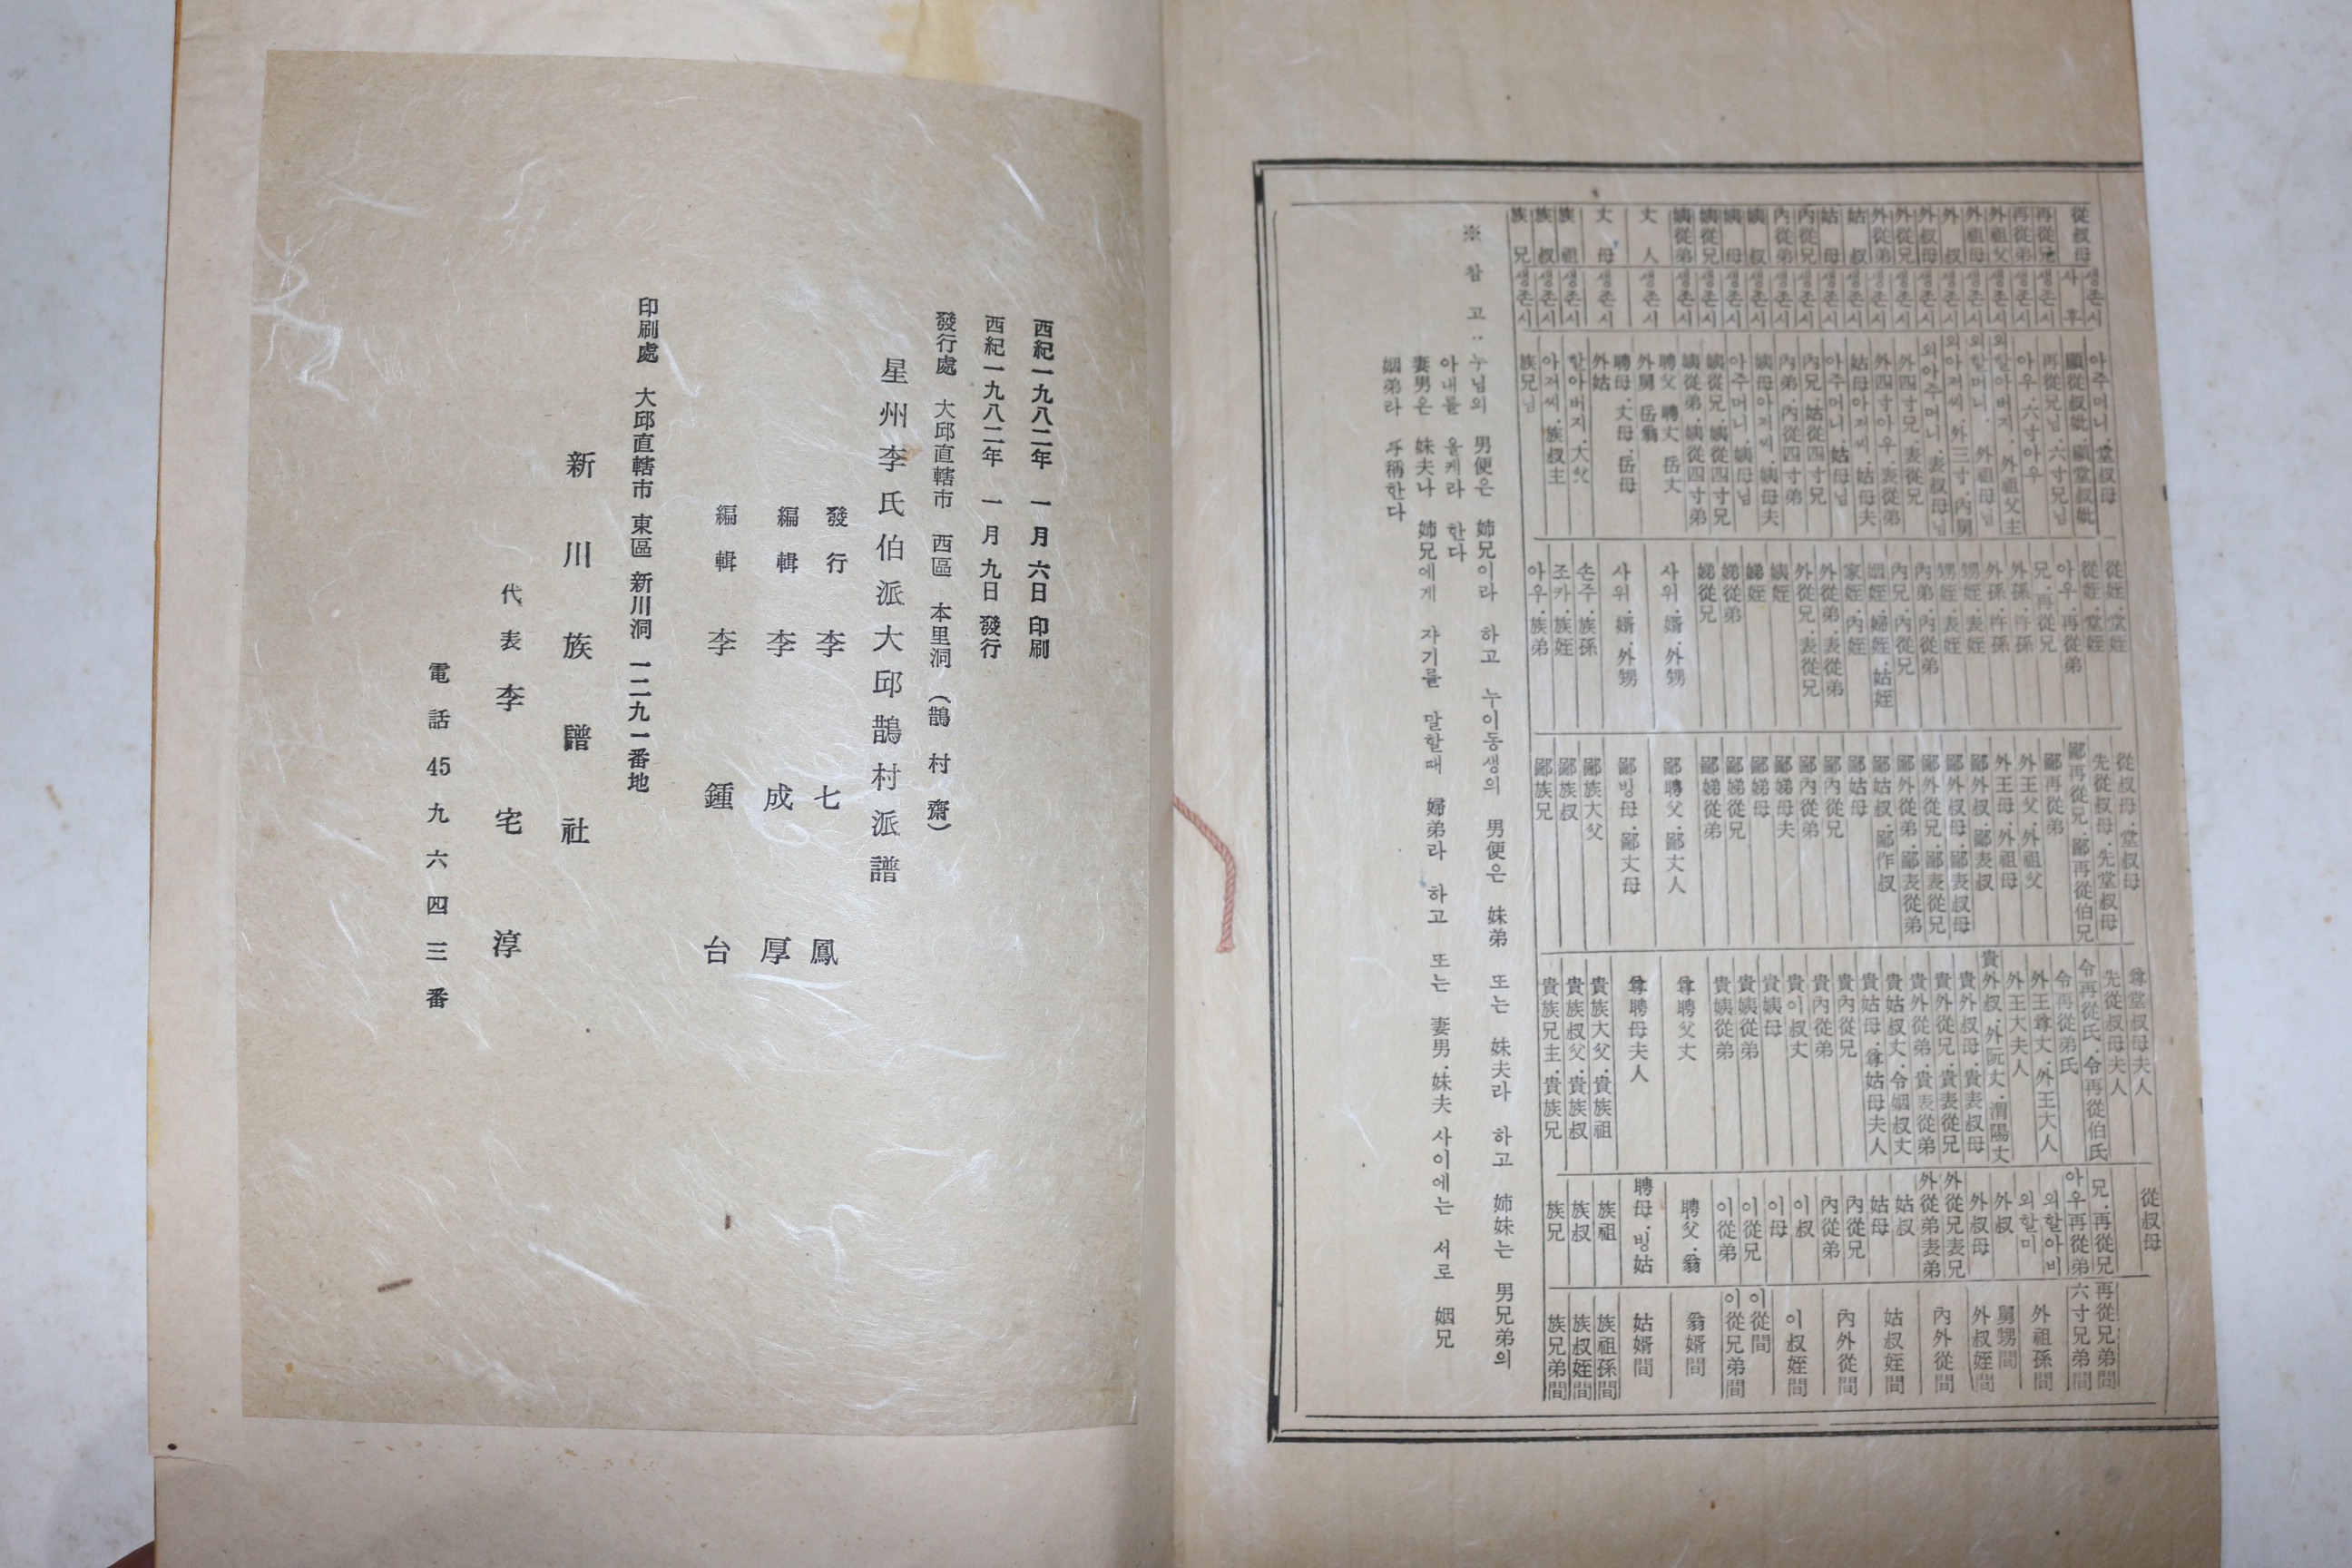 從叔母 生存시 아주머니．堂叔母 從姪．堂姪 從叔母．堂叔母 尊堂叔母夫人 從叔母
사후 顯從叔妣．顯堂叔妣 從姪．堂姪 先從叔母．先堂叔母 先從叔母夫人
再從兄 생존시 再從兄님．六寸兄님 아우．再從弟 鄙再從兄．鄙再從伯兄 令再從氏．令再從伯氏 兄．再從兄 再從兄弟間
再從弟 생존시 아우．六寸아우 兄．再從兄 鄙再從弟 令再從弟氏 아우再從弟 六寸兄弟間
外祖父 생존시 외할아버지．外祖父主 外孫．許孫 外王父．外祖父 外王尊丈．外王大人 외할아비 外祖孫間
外祖母 생존시 외할머니．外祖母님 外孫．許孫 外王母．外祖母 外王大夫人 외할미
外叔 생존시 외아저씨．外三寸．內舅 甥姪．表姪 鄙外叔．鄙表叔 貴外叔．外阮丈．渭陽丈 外叔 舅甥間
外叔母 생존시 외아주머니．表叔母님 甥姪．表姪 鄙外叔母．鄙表叔母 貴外叔母．貴表叔母 外叔母 外叔姪間
外從兄 생존시 外四寸兄．表從兄 內弟．內從弟 鄙外從兄．鄙表從兄 貴外從兄．貴表從兄 外從兄表兄 內外從間
外從弟 생존시 外四寸아우．表從弟 內兄．內從兄 鄙外從弟．鄙表從弟 貴外從弟．貴表從弟 外從弟表弟
姑叔 생존시 姑母아저씨．姑母夫 姻姪．婦姪．姑姪 鄙姑叔．鄙作叔 貴姑叔丈．令姻叔丈 姑叔 姑叔姪間
姑母 생존시 아주머니．姑母님 家姪．內姪 鄙姑母 貴姑母．尊姑母夫人 姑母
內從兄 생존시 內兄．姑從四寸兄 外從弟．表從弟 鄙內從兄 貴內從兄 內從兄 內外從
內從弟 생존시 內弟．內從四寸弟 外從兄．表從兄 鄙內從弟 貴內從弟 內從弟
姨叔 생존시 姨母아저씨．姨母夫 姨姪 鄙娣母夫 貴이叔丈 이叔 이叔姪間
姨母 생존시 아주머니．姨母님 娣姪 鄙娣母 貴姨母 이母
姨從兄 생존시 姨從兄．姨從四寸兄 娣從弟 鄙娣從兄 貴姨從弟 이從兄 이從間
姨從弟 생존시 姨從弟．姨從四寸弟 娣從兄 鄙娣從弟 貴姨從弟 이從弟 이從兄弟間
丈人 생존시 聘父．聘丈．岳丈 外舅．岳翁 사위．婿．外甥 鄙聘父．鄙丈人 尊聘父丈 聘父．翁 翁婿間
丈母 생존시 聘母．丈母．岳母 外姑 사위．婿．外甥 鄙빙母．鄙丈母 尊聘母夫人 聘母．빙姑 姑婿間
族祖 생존시 할아버지．大父 손주．族孫 鄙族大父 貴族大父．貴族祖 族祖 族祖孫間
族叔 생존시 아저씨．族叔主 조카．族姪 鄙族叔 貴族叔父．貴族叔 族叔 族叔姪間
族兄 생존시 族兄님 아우．族弟 鄙族兄 貴族兄主．貴族兄 族兄 族兄弟間
※ 참고：누님의 男便은 姉兄이라 하고 누이동생의 男便은 妹弟 또는 妹夫라 하고 姉妹는 男兄弟의
아내를 올케라 한다
妻男은 妹夫나 姉兄에게 자기를 말할때 婦弟라 하고 또는 妻男．妹夫 사이에는 서로 姻兄
姻弟라 乎稱한다
西紀一九八二年 一月 六日 印刷
西紀一九八二年 一月 九日 發行
發行處 大邱直轄市 西區 本里洞 （鵲村齋）
星州李氏伯派大邱鵲村派譜
發行 李七鳳
編輯 李成厚
編輯 李鍾台
印刷處 大邱直轄市 東區 新川洞 一二九一番地
新川族譜社
代表 李宅淳
電話 45 九六四三番